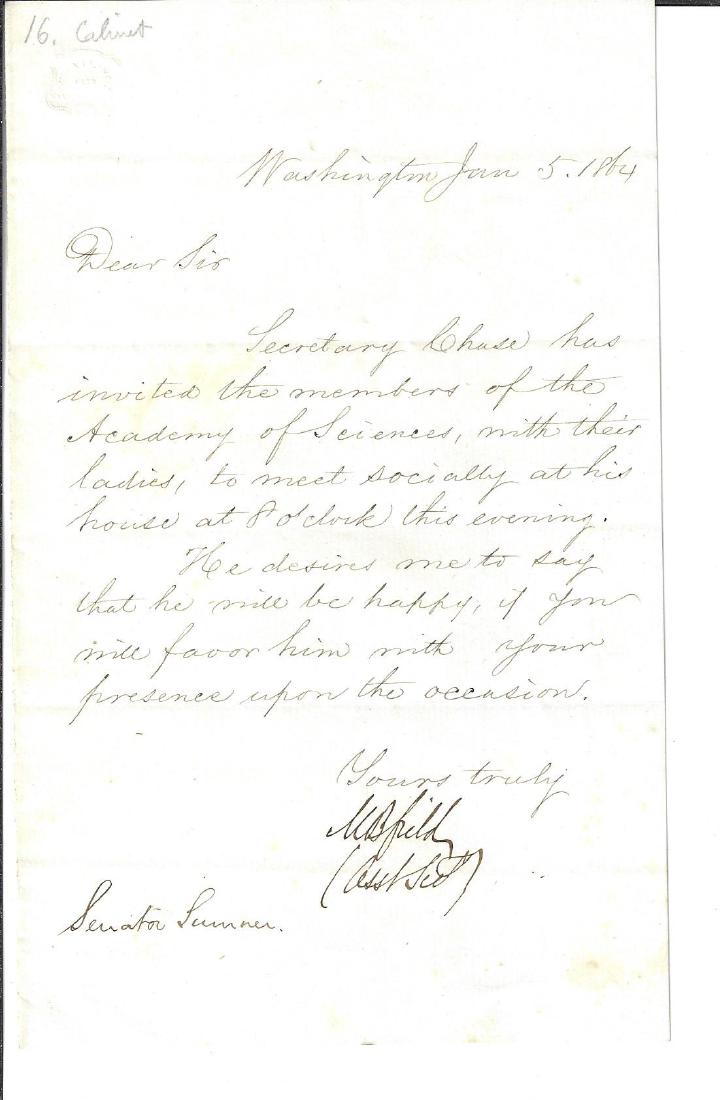 16. Cabinet
Washington Jan 5. 1864
Dear Sir
Secretary Chase has
invited the members of the
Academy of Sciences, with their
ladies, to meet socially at his
house at 8 o'clock this evening.
He desires me to say
that he will be happy, if you
will favor him with your
presence upon the occasion.
Yours truly
M B Field
(Asst Sect)
Senator Sumner.